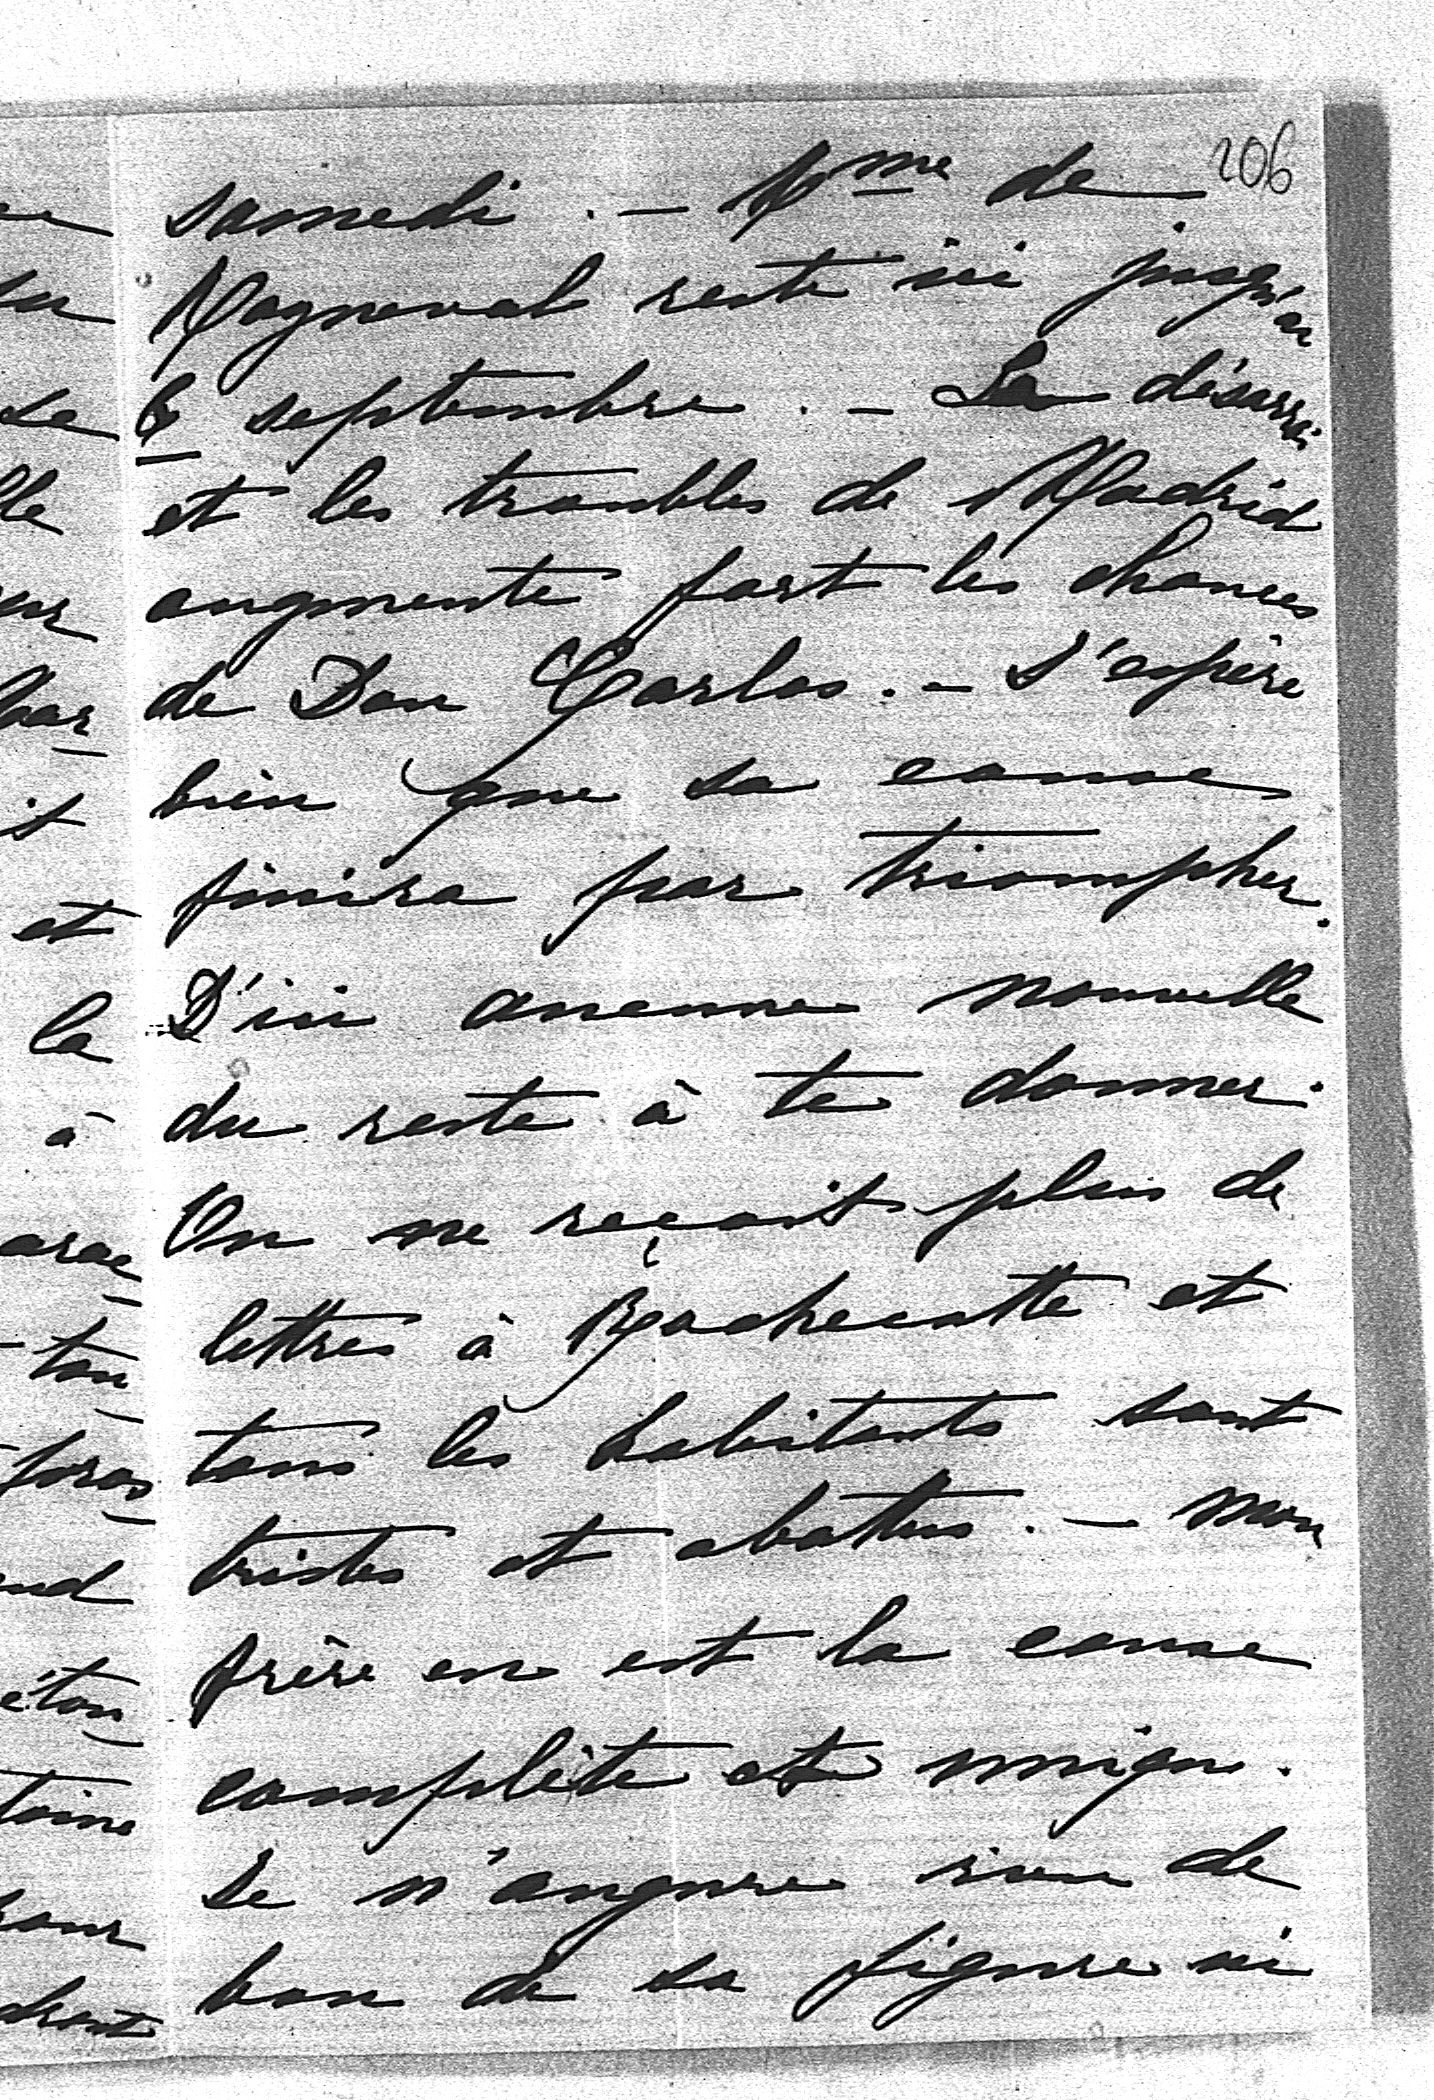 206
samedi. — Mme de
Rayneval reste ici jusqu'au
6 septembre. — Le désarroi
et les troubles de Madrid
augmente fort les chances
de Don Carlos. — J'espère
bien que sa cause
finira par triompher.
D'ici aucune nouvelle
du reste à te donner.
On ne reçoit plus de
lettres à Rochecotte et
tous les habitants sont
tristes et abattus. — Mon
frère en est la cause
complète et unique.
Je n'augure rien de
bon de sa figure ni